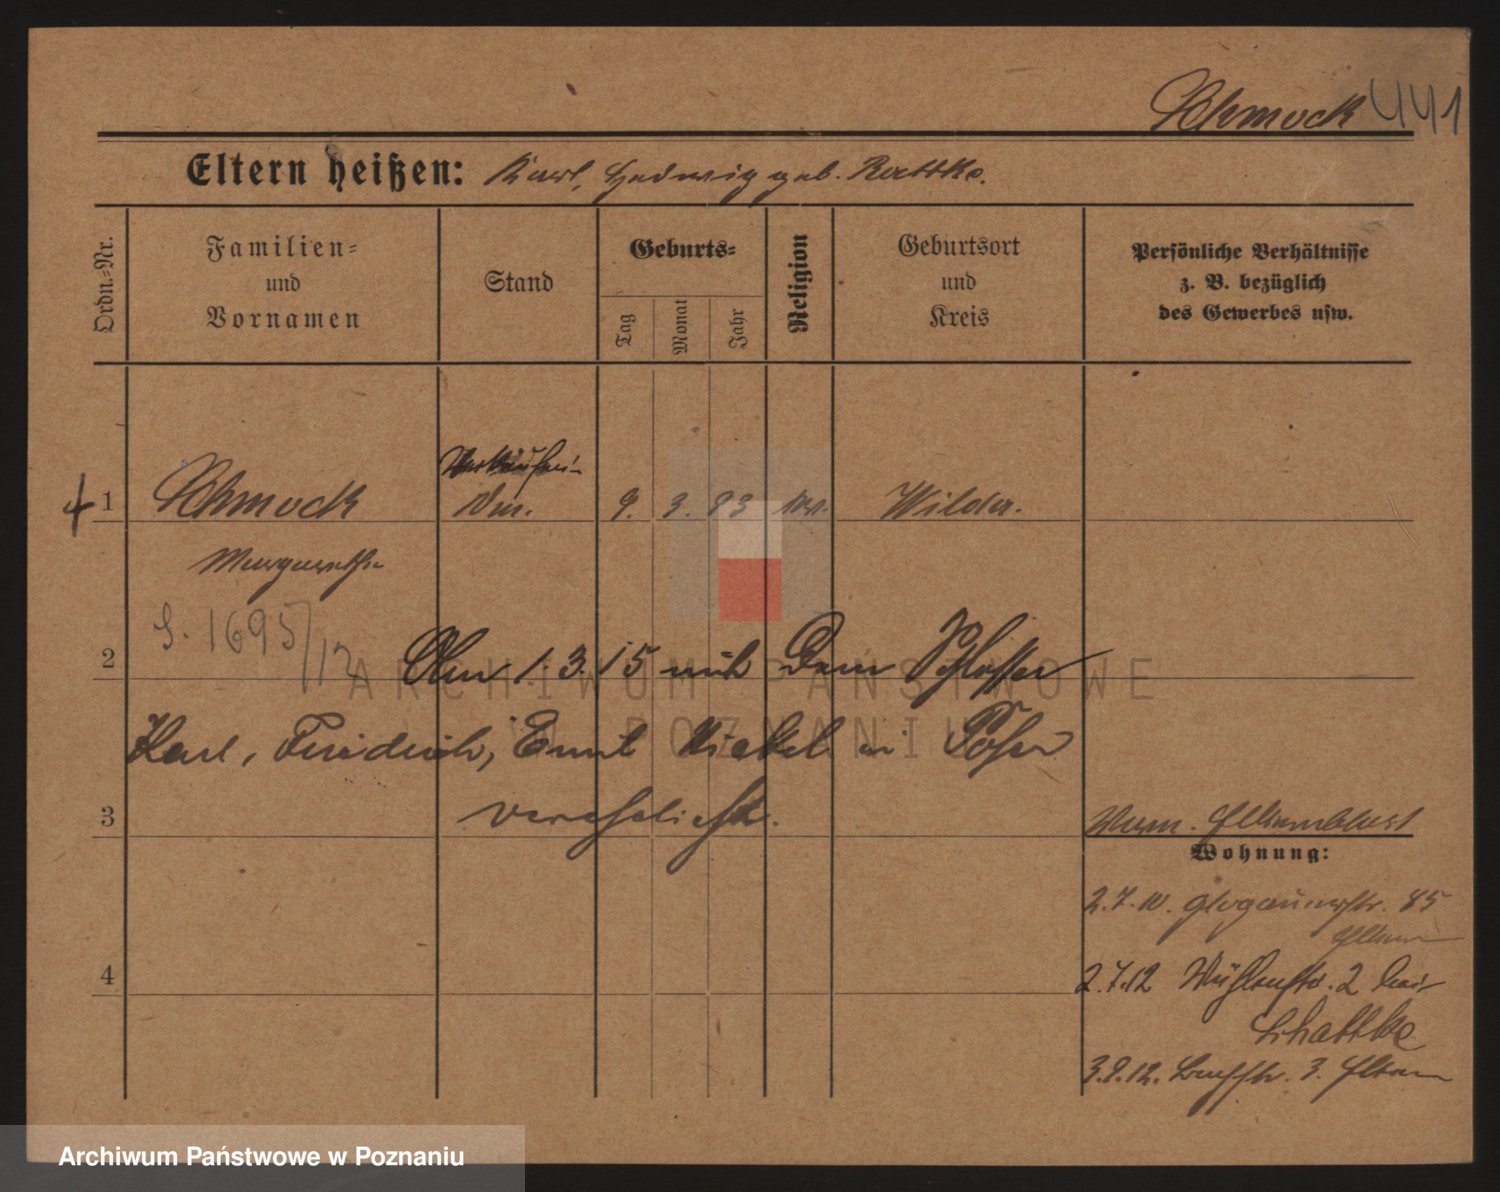 Schmock 441
Eltern heißen: Karl, Hedwig geb. Rattke.
Ordn.=Nr.
Familien=
und
Vornamen
Stand
Geburts=
Tag
Monat
Jahr
Religion
Geburtsort
und
Kreis
Persönliche Verhältnisse
z. B. bezüglich
des Gewerbes usw.
Verkäuferin
1 Schmock 9. 3. 93 Wilda.
Margarethe
S. 1695/12
2 Am 1.3.15 mit dem Schlosser
Karl, Friedrich, Ernst Nickel in Posen
3 verehelicht.
Wohnung:
2.7.10. Glogauerstr. 85
Eltern
4 2.7.12 Mühlenstr. 2 bei
Schattke
3.8.12. 3. Eltern
ARCHIWUM PAŃSTWOWE
W POZNANIU
Archiwum Państwowe w Poznaniu